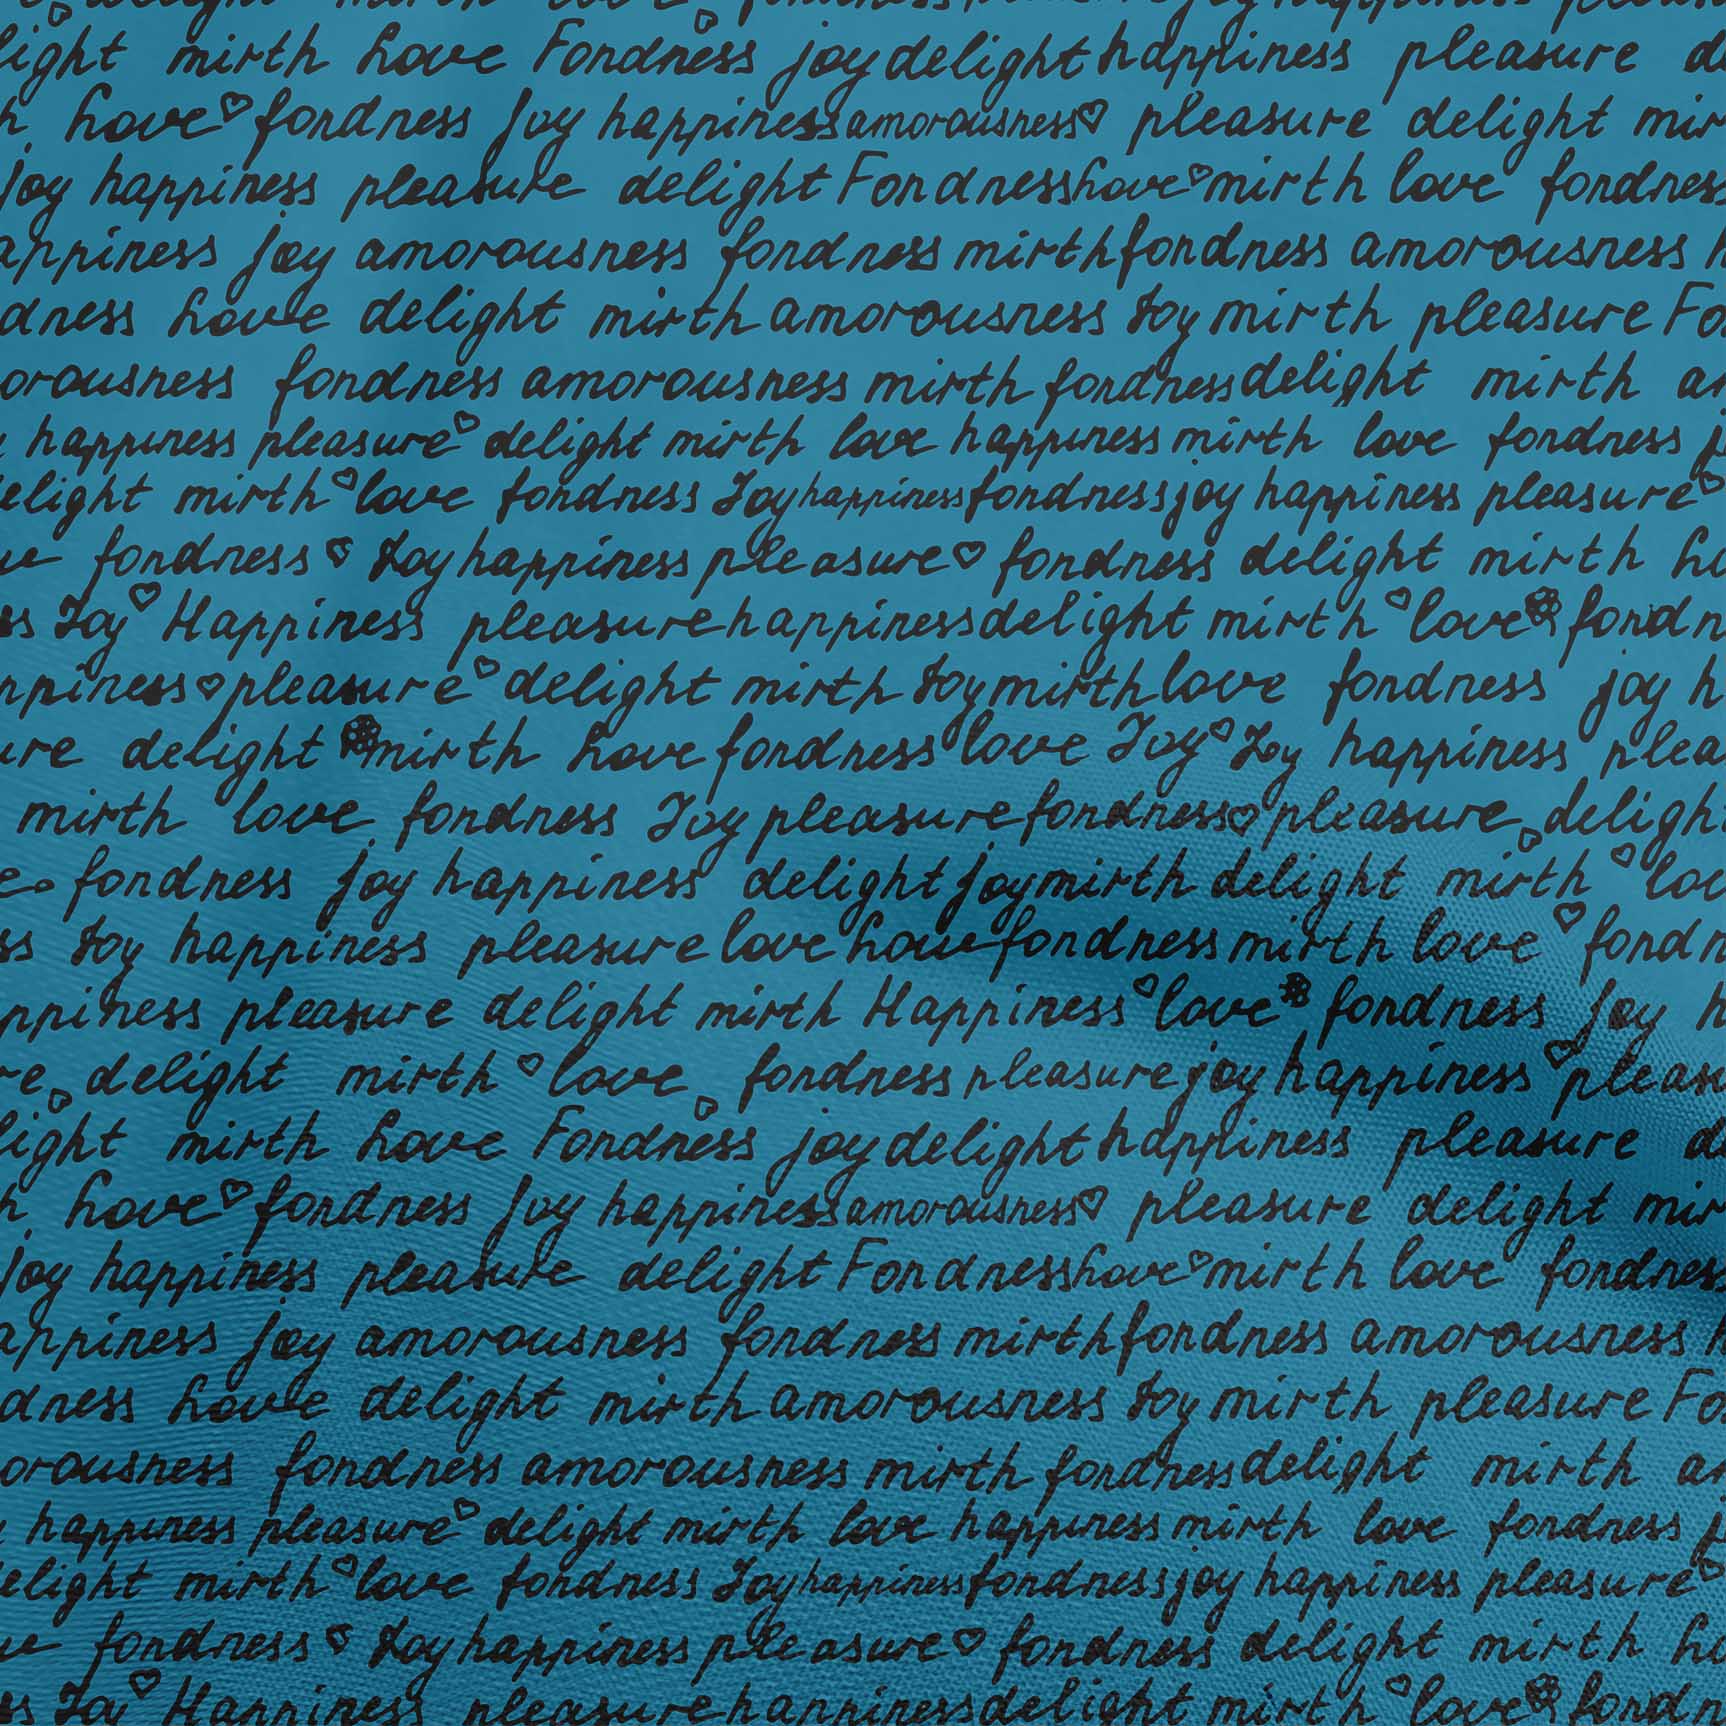 delight mirth love fondness joy happiness
light mirth love Fondness joy delight happiness pleasure de
h love fondness Joy happiness amorousness pleasure delight mir
joy happiness pleasure delight Fondness love mirth love fondness
appiness joy amorousness fondness mirth fondness amorousness h
dness love delight mirth amorousness Joy mirth pleasure Fo
orousness fondness amorousness mirth fondness delight mirth am
happiness pleasure delight mirth love happiness mirth love fondness j
elight mirth love fondness Joy happiness fondness joy happiness pleasure
ve fondness Joy happiness pleasure fondness delight mirth lo
ss Joy Happiness pleasure happiness delight mirth love fondn
ppiness pleasure delight mirth Joy mirth love fondness joy h
ure delight mirth love fondness love Joy Joy happiness plea
mirth love fondness Joy pleasure fondness pleasure deligh
e fondness joy happiness delight joy mirth delight mirth lov
ss Joy happiness pleasure love love fondness mirth love fondn
ppiness pleasure delight mirth Happiness love fondness joy h
re delight mirth love fondness pleasure joy happiness pleasu
light mirth love Fondness joy delight happiness pleasure de
h love fondness Joy happiness amorousness pleasure delight mir
joy happiness pleasure delight Fondness love mirth love fondness
appiness joy amorousness fondness mirth fondness amorousness h
dness love delight mirth amorousness Joy mirth pleasure Fo
orousness fondness amorousness mirth fondness delight mirth am
happiness pleasure delight mirth love happiness mirth love fondness j
elight mirth love fondness Joy happiness fondness joy happiness pleasure
ve fondness Joy happiness pleasure fondness delight mirth lo
ss Joy Happiness pleasure happiness delight mirth love fondn